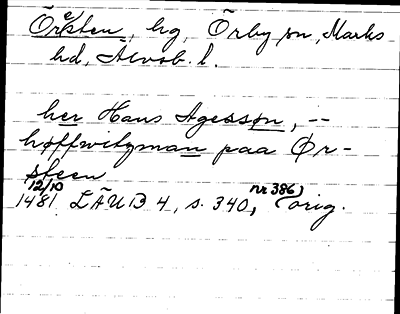 Örksten, hg, Örby sn, Marks
hd, Älvsb. l.
her Hans Agesson, --
høffwitzman paa Ør-
steen
12/10
1481 LÄUB 4, s. 340, nr 386, orig.